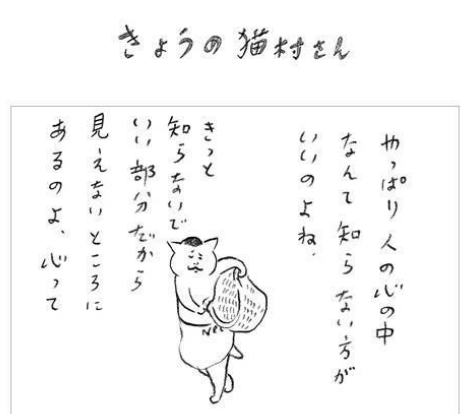 きょうの猫村さん
やっぱり人の心の中
なんて知らない方が
いいのよね、
きっと
知らないで
いい部分だから
見えないところに
あるのよ、心って
NEKO